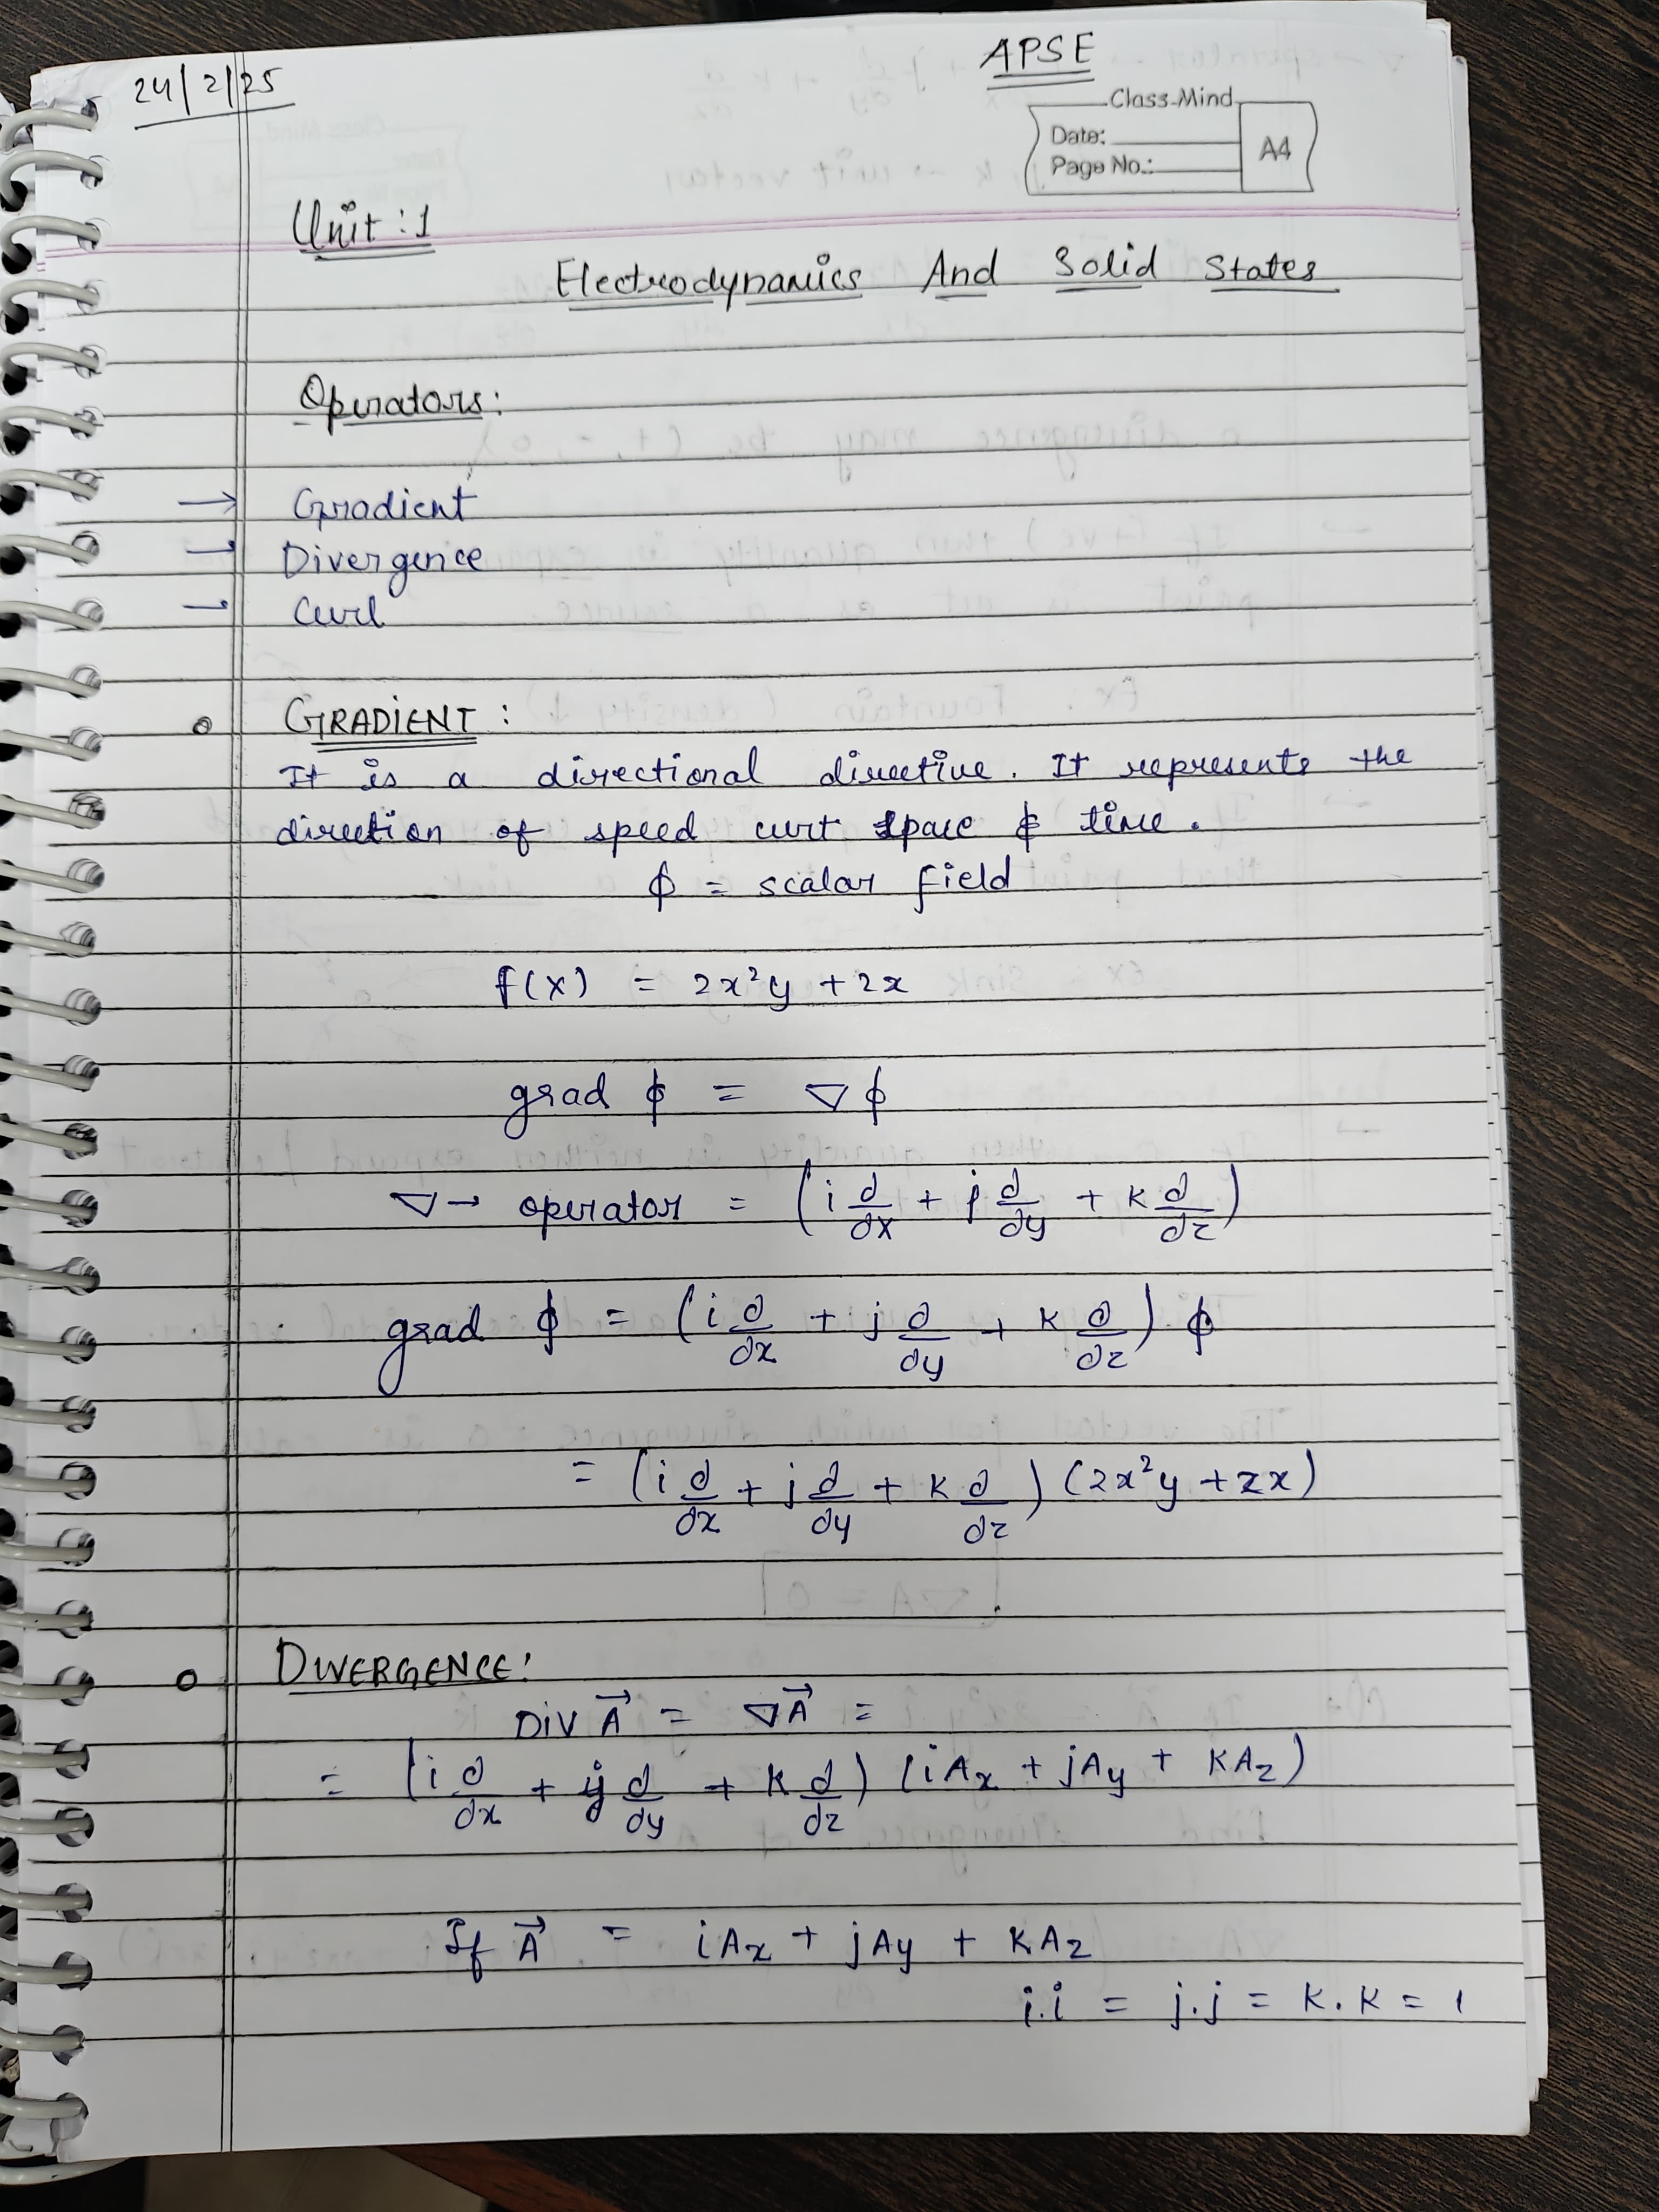 24/2/25
APSE
Class-Mind
Date:
Page No.:
A4
Unit : 1
Electrodynamics And Solid States
Operators:
→ Gradient
→ Divergence
→ Curl
o GRADIENT :
It is a directional directive. It represents the
direction of speed wrt space & time.
ϕ = scalar field
f(x) = 2x²y + 2x
grad ϕ = ∇ϕ
∇ → operator = (i ∂/∂x + j ∂/∂y + k ∂/∂z)
grad ϕ = (i ∂/∂x + j ∂/∂y + k ∂/∂z) ϕ
= (i ∂/∂x + j ∂/∂y + k ∂/∂z) (2x²y + zx)
o DIVERGENCE:
DIV A⃗ = ∇A⃗ =
= (i ∂/∂x + j ∂/∂y + k ∂/∂z) (iAx + jAy + kAz)
If A⃗ = iAx + jAy + kAz
i.i = j.j = k.k = 1